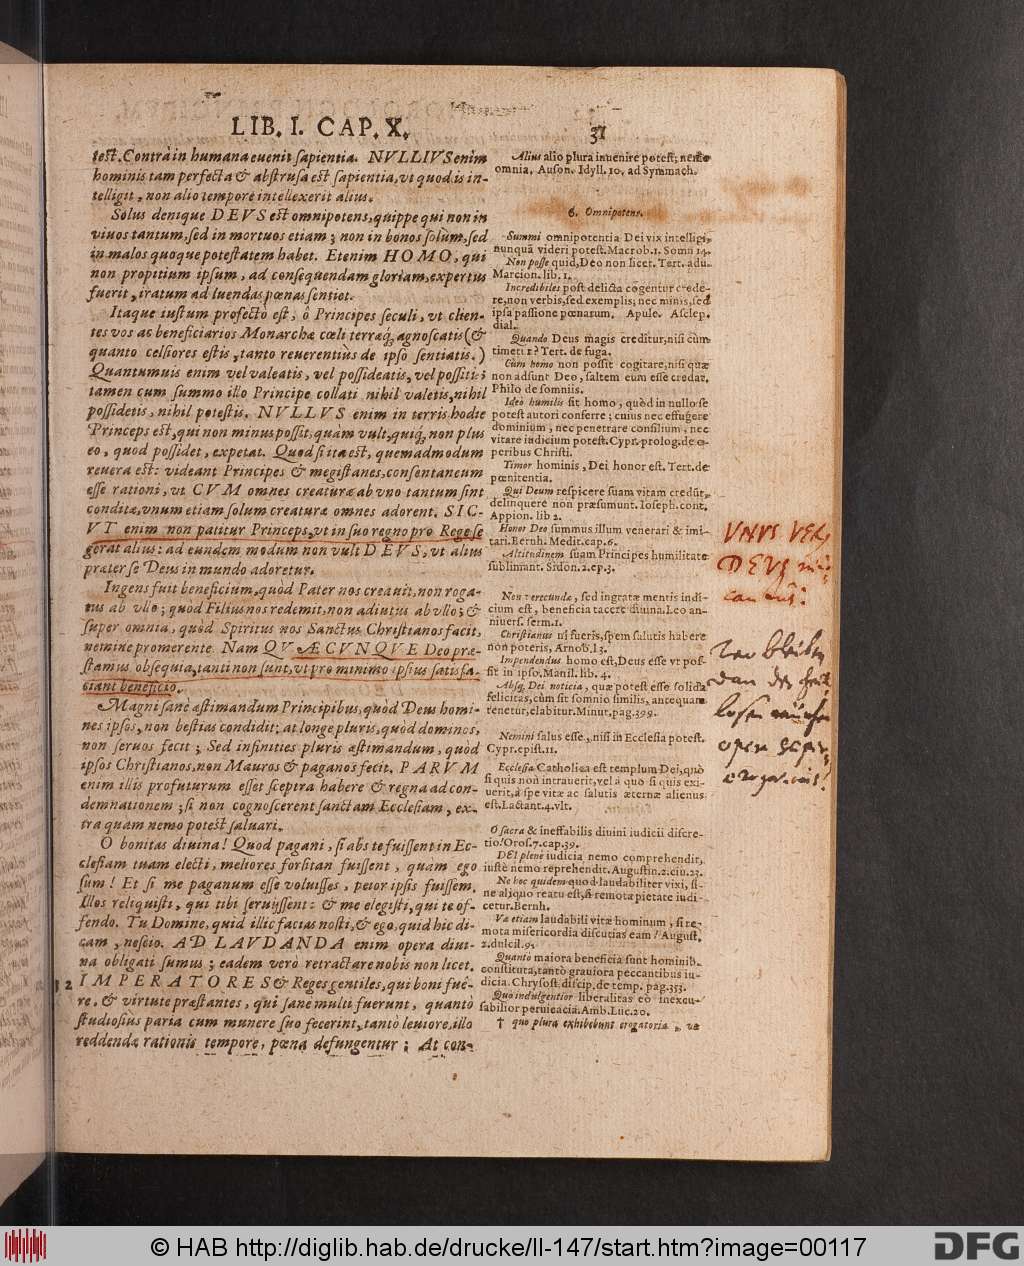 LIB. I. CAP. X. 31
test. Contrà in humana euenit sapientia. NVLLIVS enim
hominis tam perfecta & abstrusa est sapientia, vt quod is in-
telligit, non alio tempore intellexerit alius.
Solus denique DEVS est omnipotens, quippe qui non in
viuos tantum, sed in mortuos etiam; non in bonos solum, sed
in malos quoque potestatem habet. Etenim HOMO, qui
non propitium ipsum, ad consequendam gloriam, expertus
fuerit, iratum ad luendas pœnas sentiet.
Itaque iustum profectò est, ô Principes seculi, vt clien-
tes vos ac beneficiarios Monarchæ cœli terræq́; agnoscatis (&
quanto celsiores estis, tanto reuerentiùs de ipso sentiatis.)
Quantumuis enim vel valeatis, vel possideatis, vel possitis;
tamen cum summo illo Principe collati nihil valetis, nihil
possidetis, nihil potestis. NVLLVS enim in terris hodie
Princeps est, qui non minus possit, quàm vult, quiq́; non plus
eo, quod possidet, expetat. Quod si ita est, quemadmodum
reuera est: videant Principes & megistanes, consentaneum
esse rationi, vt CVM omnes creaturæ ab vno tantum sint
conditæ, vnum etiam solum creaturæ omnes adorent. SIC-
VT enim non patitur Princeps, vt in suo regno pro Rege se
gerat alius: ad eundem modum non vult DEVS, vt alius
præter se Deus in mundo adoretur.
Ingens fuit beneficium, quòd Pater nos creauit, non roga-
tus ab vllo; quòd Filius nos redemit, non adiutus ab vllo; &
super omnia, quòd Spiritus nos Sanctus Christianos facit,
nemine promerente. Nam QVÆCVNQVE Deo præ-
stamus obsequia, tanti non sunt, vt pro minimo ipsius satisfa-
ciant beneficio.
Magni sanè æstimandum Principibus, quòd Deus homi-
nes ipsos, non bestias condidit: at longe pluris, quòd dominos,
non seruos fecit; Sed infinities pluris æstimandum, quòd
ipsos Christianos, non Mauros & paganos fecit. PARVM
enim illis profuturum esset sceptra habere & regna ad con-
demnationem; si non cognoscerent sanctam Ecclesiam, ex-
tra quam nemo potest saluari.
O bonitas diuina! Quod pagani, si abs te fuissent in Ec-
clesiam tuam electi, meliores forsitan fuissent, quàm ego
sum! Et si me paganum esse voluisses, peior ipsis fuissem.
Illos reliquisti, qui tibi seruijssent: & me elegisti, qui te of-
fendo. Tu Domine, quid illic facias nosti, & ego, quid hic di-
cam, nescio. AD LAVDANDA enim opera diui-
na obligati sumus; eadem verò retractare nobis non licet.
32 IMPERATORES & Reges gentiles, qui boni fuê-
re, & virtute præstantes, qui sane multi fuerunt, quantò
studiosiùs paria cum munere suo fecerint, tantò leuiore, illo
reddendæ rationis tempore, pœna defungentur; At con-
Alius alio plura inuenire potest; nemo
omnia. Auson. Idyll. 10. ad Symmach.
6. Omnipotens.
Summi omnipotentia Dei vix intelligi,
nunquã videri potest. Macrob. 1. Somii 14.
Non posse quid, Deo non licet. Tert. adu.
Marcion. lib. 1.
Incredibiles post delicta cogentur crede-
re, non verbis, sed exemplis; nec minis, sed
ipsa passione pœnarum. Apule. Asclep.
dial.
Quando Deus magis creditur, nisi cùm
timetur? Tert. de fuga.
Cùm homo non possit cogitare, nisi quæ
non adsunt Deo, saltem eum esse credat.
Philo de somniis.
Ideo humilis sit homo, quòd in nullo se
potest autori conferre; cuius nec effugere
dominium, nec penetrare consilium, nec
vitare iudicium potest. Cypr. prolog. de o-
peribus Christi.
Timor hominis, Dei honor est. Tert. de
pœnitentia.
Qui Deum respicere suam vitam credũt,
delinquere non præsumunt. Ioseph. cont.
Appion. lib 2.
Honor Deo summus illum venerari & imi-
tari. Bernh. Medit. cap. 6.
Altitudinem suam Principes humilitate
sublimant. Sidon. 2. ep. 3.
Non verecundæ, sed ingratæ mentis indi-
cium est, beneficia tacere diuina. Leo an-
niuers. serm. 1.
Christianus ni fueris, spem salutis habere
non poteris, Arnob. l. 3.
Impendendus homo est, Deus esse vt pos-
sit in ipso. Manil. lib. 4.
Absq́; Dei noticia, quæ potest esse solida
felicitas, cùm sit somnio similis, antequam
tenetur, elabitur. Minut. pag. 399.
Nemini salus esse, nisi in Ecclesia potest.
Cypr. epist. 11.
Ecclesia Catholica est templum Dei, quò
si quis non intrauerit, vel à quo si quis exi-
uerit, à spe vitæ ac salutis æternæ alienus
est. Lactant. 4. vlt.
O sacra & ineffabilis diuini iudicii discre-
tio! Oros. 7. cap. 39.
DEI plene iudicia nemo comprehendit,
iustè nemo reprehendit. Augustin. 2. ciu. 23.
Ne hoc quidem quod laudabiliter vixi, si-
ne aliquo reatu est, si remota pietate iudi-
cetur. Bernh.
Væ etiam laudabili vitæ hominum, si re-
mota misericordia discutias eam! August.
2. dulcil. 9.
Quantò maiora beneficia sunt hominib.
constituta, tantò grauiora peccantibus iu-
dicia. Chrysost. discip. de temp. pag. 353.
Quo indulgentior liberalitas eò inexcu-
sabilior peruicacia. Amb. Luc. 20.
† quo plura exhibebunt erogatoria, væ
VNVS VER,
DEVS
dan der
opera super
erogat
© HAB http://diglib.hab.de/drucke/li-147/start.htm?image=00117
DFG